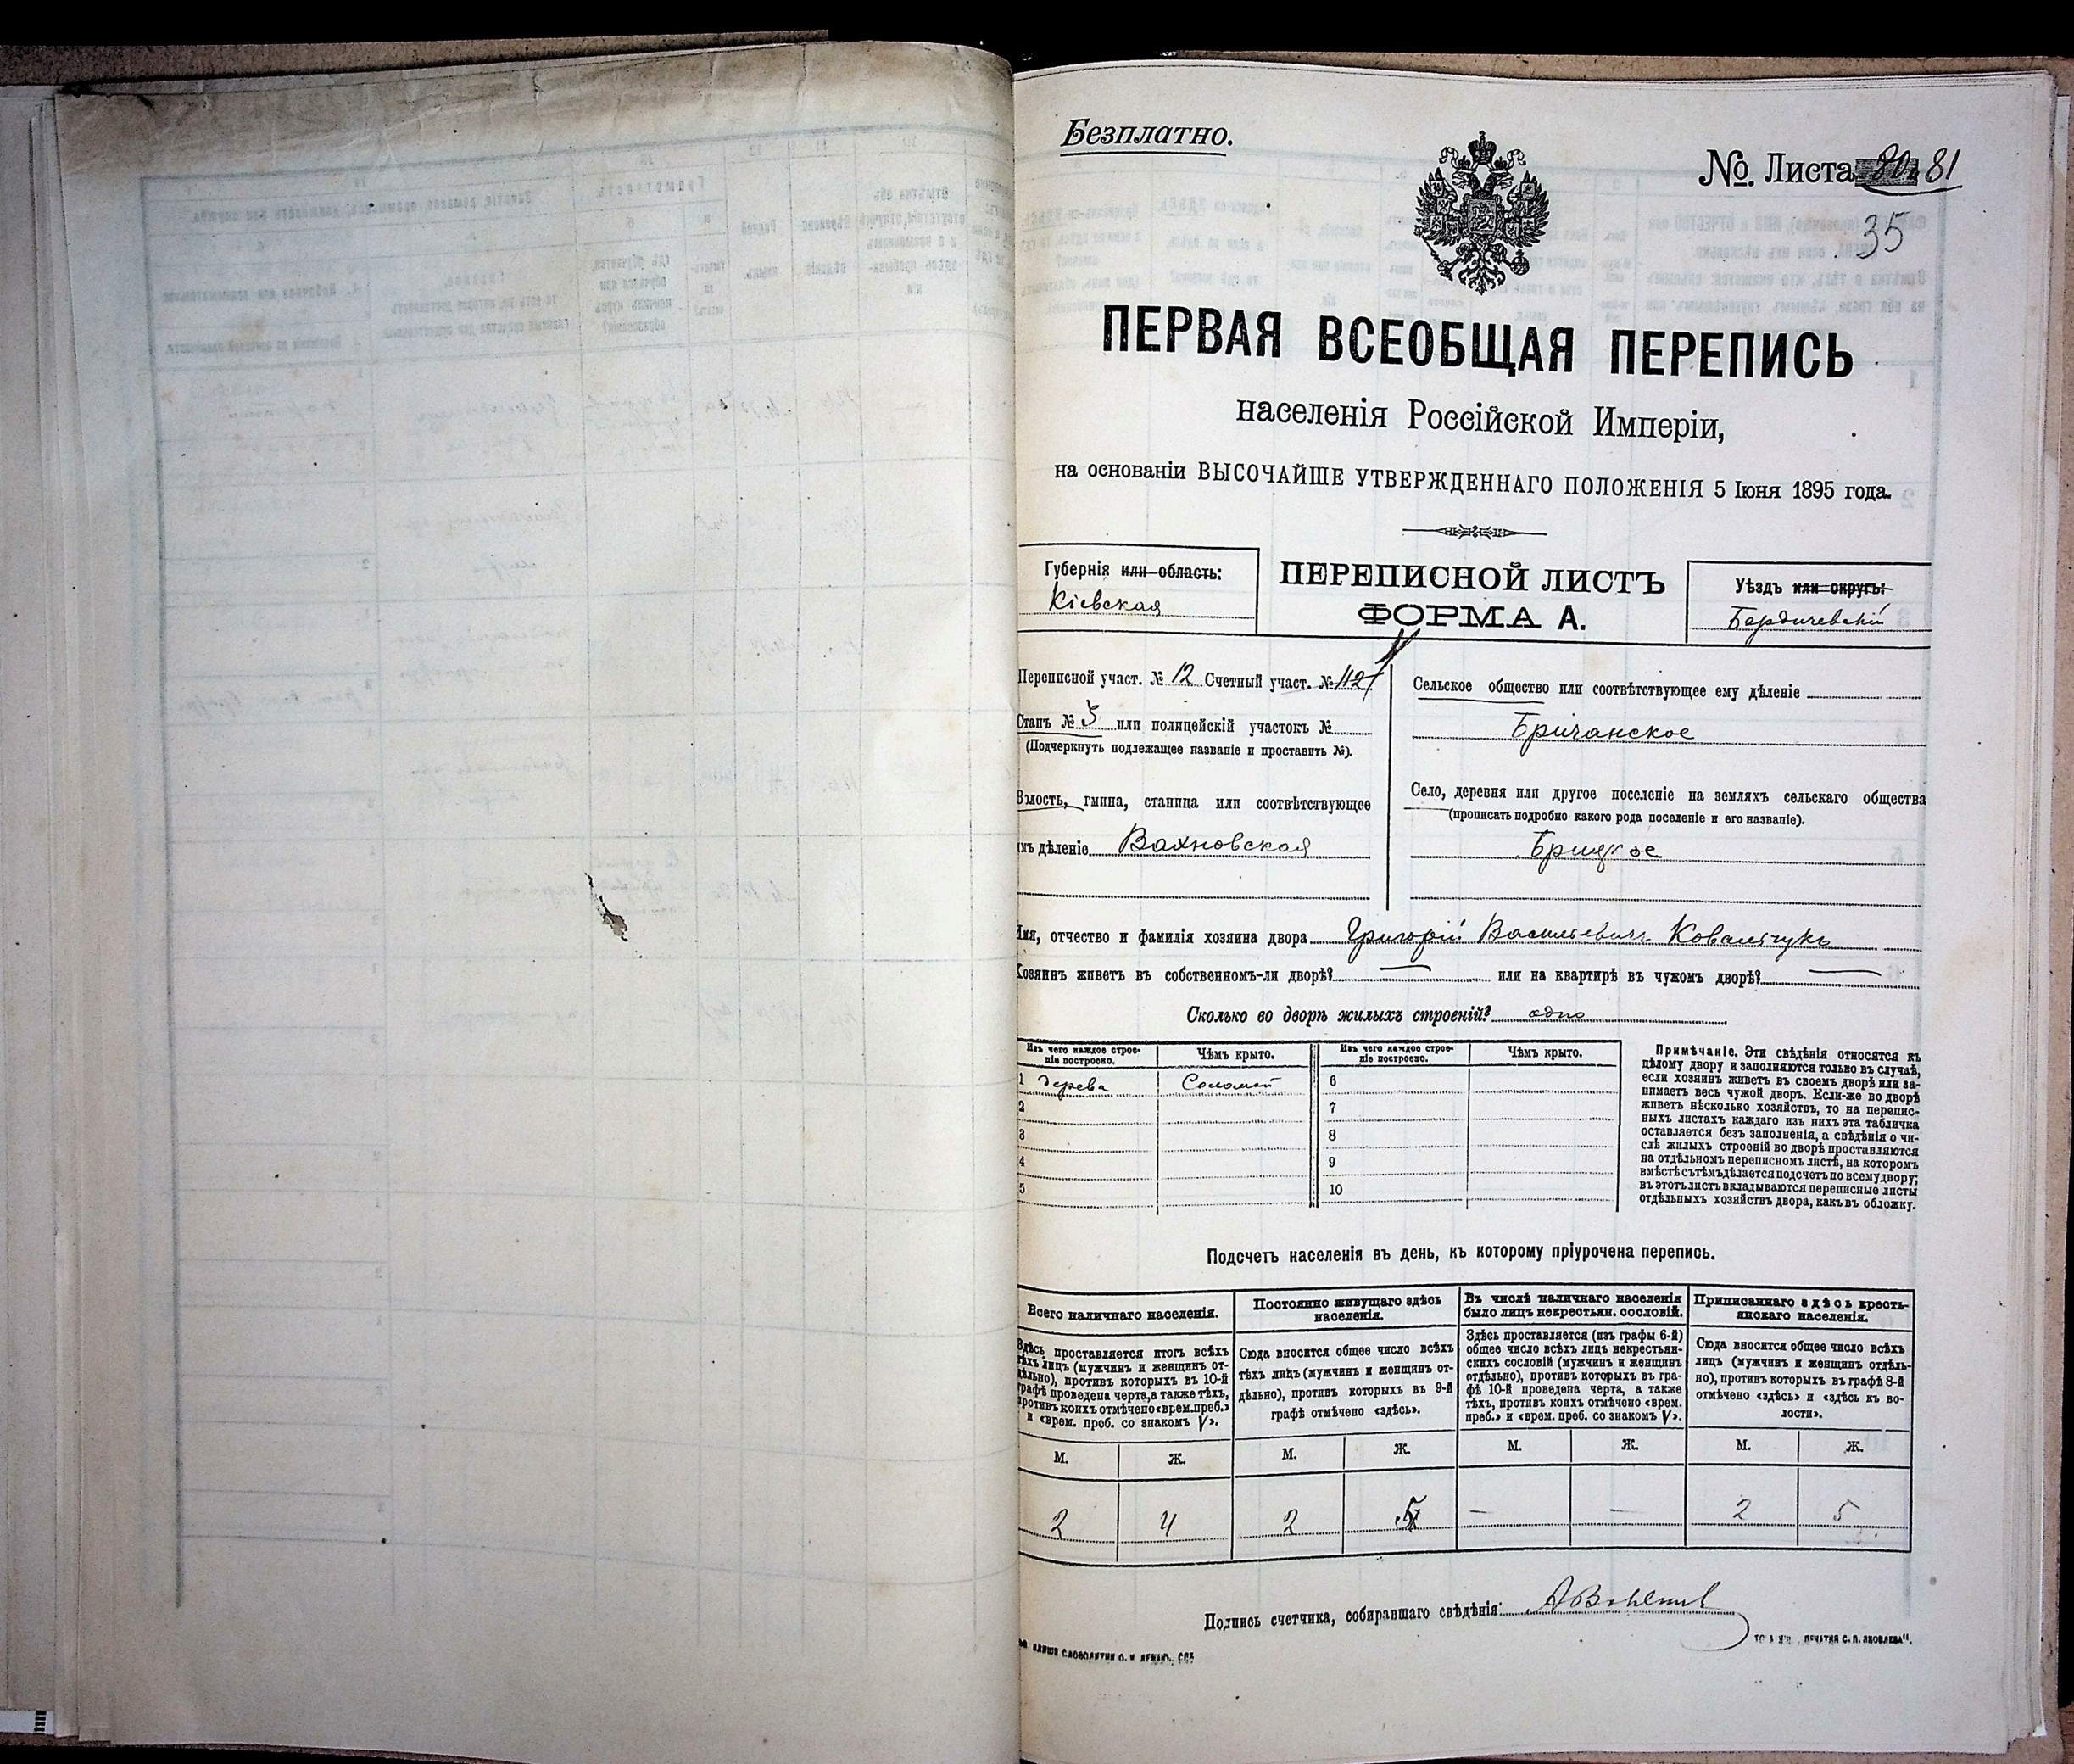 Безплатно.
№. Листа 81
35
ПЕРВАЯ ВСЕОБЩАЯ ПЕРЕПИСЬ
населенія Россійской Имперіи,
на основаніи ВЫСОЧАЙШЕ УТВЕРЖДЕННАГО ПОЛОЖЕНІЯ 5 Іюня 1895 года.
Губернія или область:
Кіевская
ПЕРЕПИСНОЙ ЛИСТЪ
ФОРМА А.
Уѣздъ или округъ:
Бердичевскій
Переписной участ. № 12 Счетный участ. №
Станъ № 3 или полицейскій участокъ №
(Подчеркнуть подлежащее названіе и проставить №).
Волость, гмина, станица или соотвѣтствующее
имъ дѣленіе Вахновская
Сельское общество или соотвѣтствующее ему дѣленіе
Бричанское
Село, деревня или другое поселеніе на земляхъ сельскаго общества
(прописать подробно какого рода поселеніе и его названіе).
Брицкое
Имя, отчество и фамилія хозяина двора Григорій Васильевичъ Ковальчукъ
Хозяинъ живетъ въ собственномъ-ли дворѣ? — или на квартирѣ въ чужомъ дворѣ? —
Сколько во дворѣ жилыхъ строеній? одно
Изъ чего каждое строе-
ніе построено.
Чѣмъ крыто.
Изъ чего каждое строе-
ніе построено.
Чѣмъ крыто.
1 дерева Соломой 6
2 7
3 8
4 9
5 10
Примѣчаніе. Эти свѣдѣнія относятся къ
цѣлому двору и заполняются только въ случаѣ,
если хозяинъ живетъ въ своемъ дворѣ или за-
нимаетъ весь чужой дворъ. Если-же во дворѣ
живетъ нѣсколько хозяйствъ, то на перепис-
ныхъ листахъ каждаго изъ нихъ эта табличка
оставляется безъ заполненія, а свѣдѣнія о чи-
слѣ жилыхъ строеній во дворѣ проставляются
на отдѣльномъ переписномъ листѣ, на которомъ
вмѣстѣ съ тѣмъ дѣлается подсчетъ по всему двору;
въ этотъ листъ вкладываются переписные листы
отдѣльныхъ хозяйствъ двора, какъ въ обложку.
Подсчетъ населенія въ день, къ которому пріурочена перепись.
Всего наличнаго населенія.
Здѣсь проставляется итогъ всѣхъ
тѣхъ лицъ (мужчинъ и женщинъ от-
дѣльно), противъ которыхъ въ 10-й
графѣ проведена черта, а также тѣхъ,
противъ коихъ отмѣчено «врем. преб.»
и «врем. проб. со знакомъ V».
Постоянно живущаго здѣсь
населенія.
Сюда вносится общее число всѣхъ
тѣхъ лицъ (мужчинъ и женщинъ от-
дѣльно), противъ которыхъ въ 9-й
графѣ отмѣчено «здѣсь».
Въ числѣ наличнаго населенія
было лицъ некрестьян. сословій.
Здѣсь проставляется (изъ графы 6-й)
общее число всѣхъ лицъ некрестьян-
скихъ сословій (мужчинъ и женщинъ
отдѣльно), противъ которыхъ въ гра-
фѣ 10-й проведена черта, а также
тѣхъ, противъ коихъ отмѣчено «врем.
преб.» и «врем. проб. со знакомъ V».
Приписаннаго здѣсь кресть-
янскаго населенія.
Сюда вносится общее число всѣхъ
лицъ (мужчинъ и женщинъ отдѣль-
но), противъ которыхъ въ графѣ 8-й
отмѣчено «здѣсь» и «здѣсь къ во-
лости».
М. Ж. М. Ж. М. Ж. М. Ж.
2 4 2 5 — — 2 5
Подпись счетчика, собиравшаго свѣдѣнія:
ПЕЧАТНЯ С. П. ЯКОВЛЕВА".